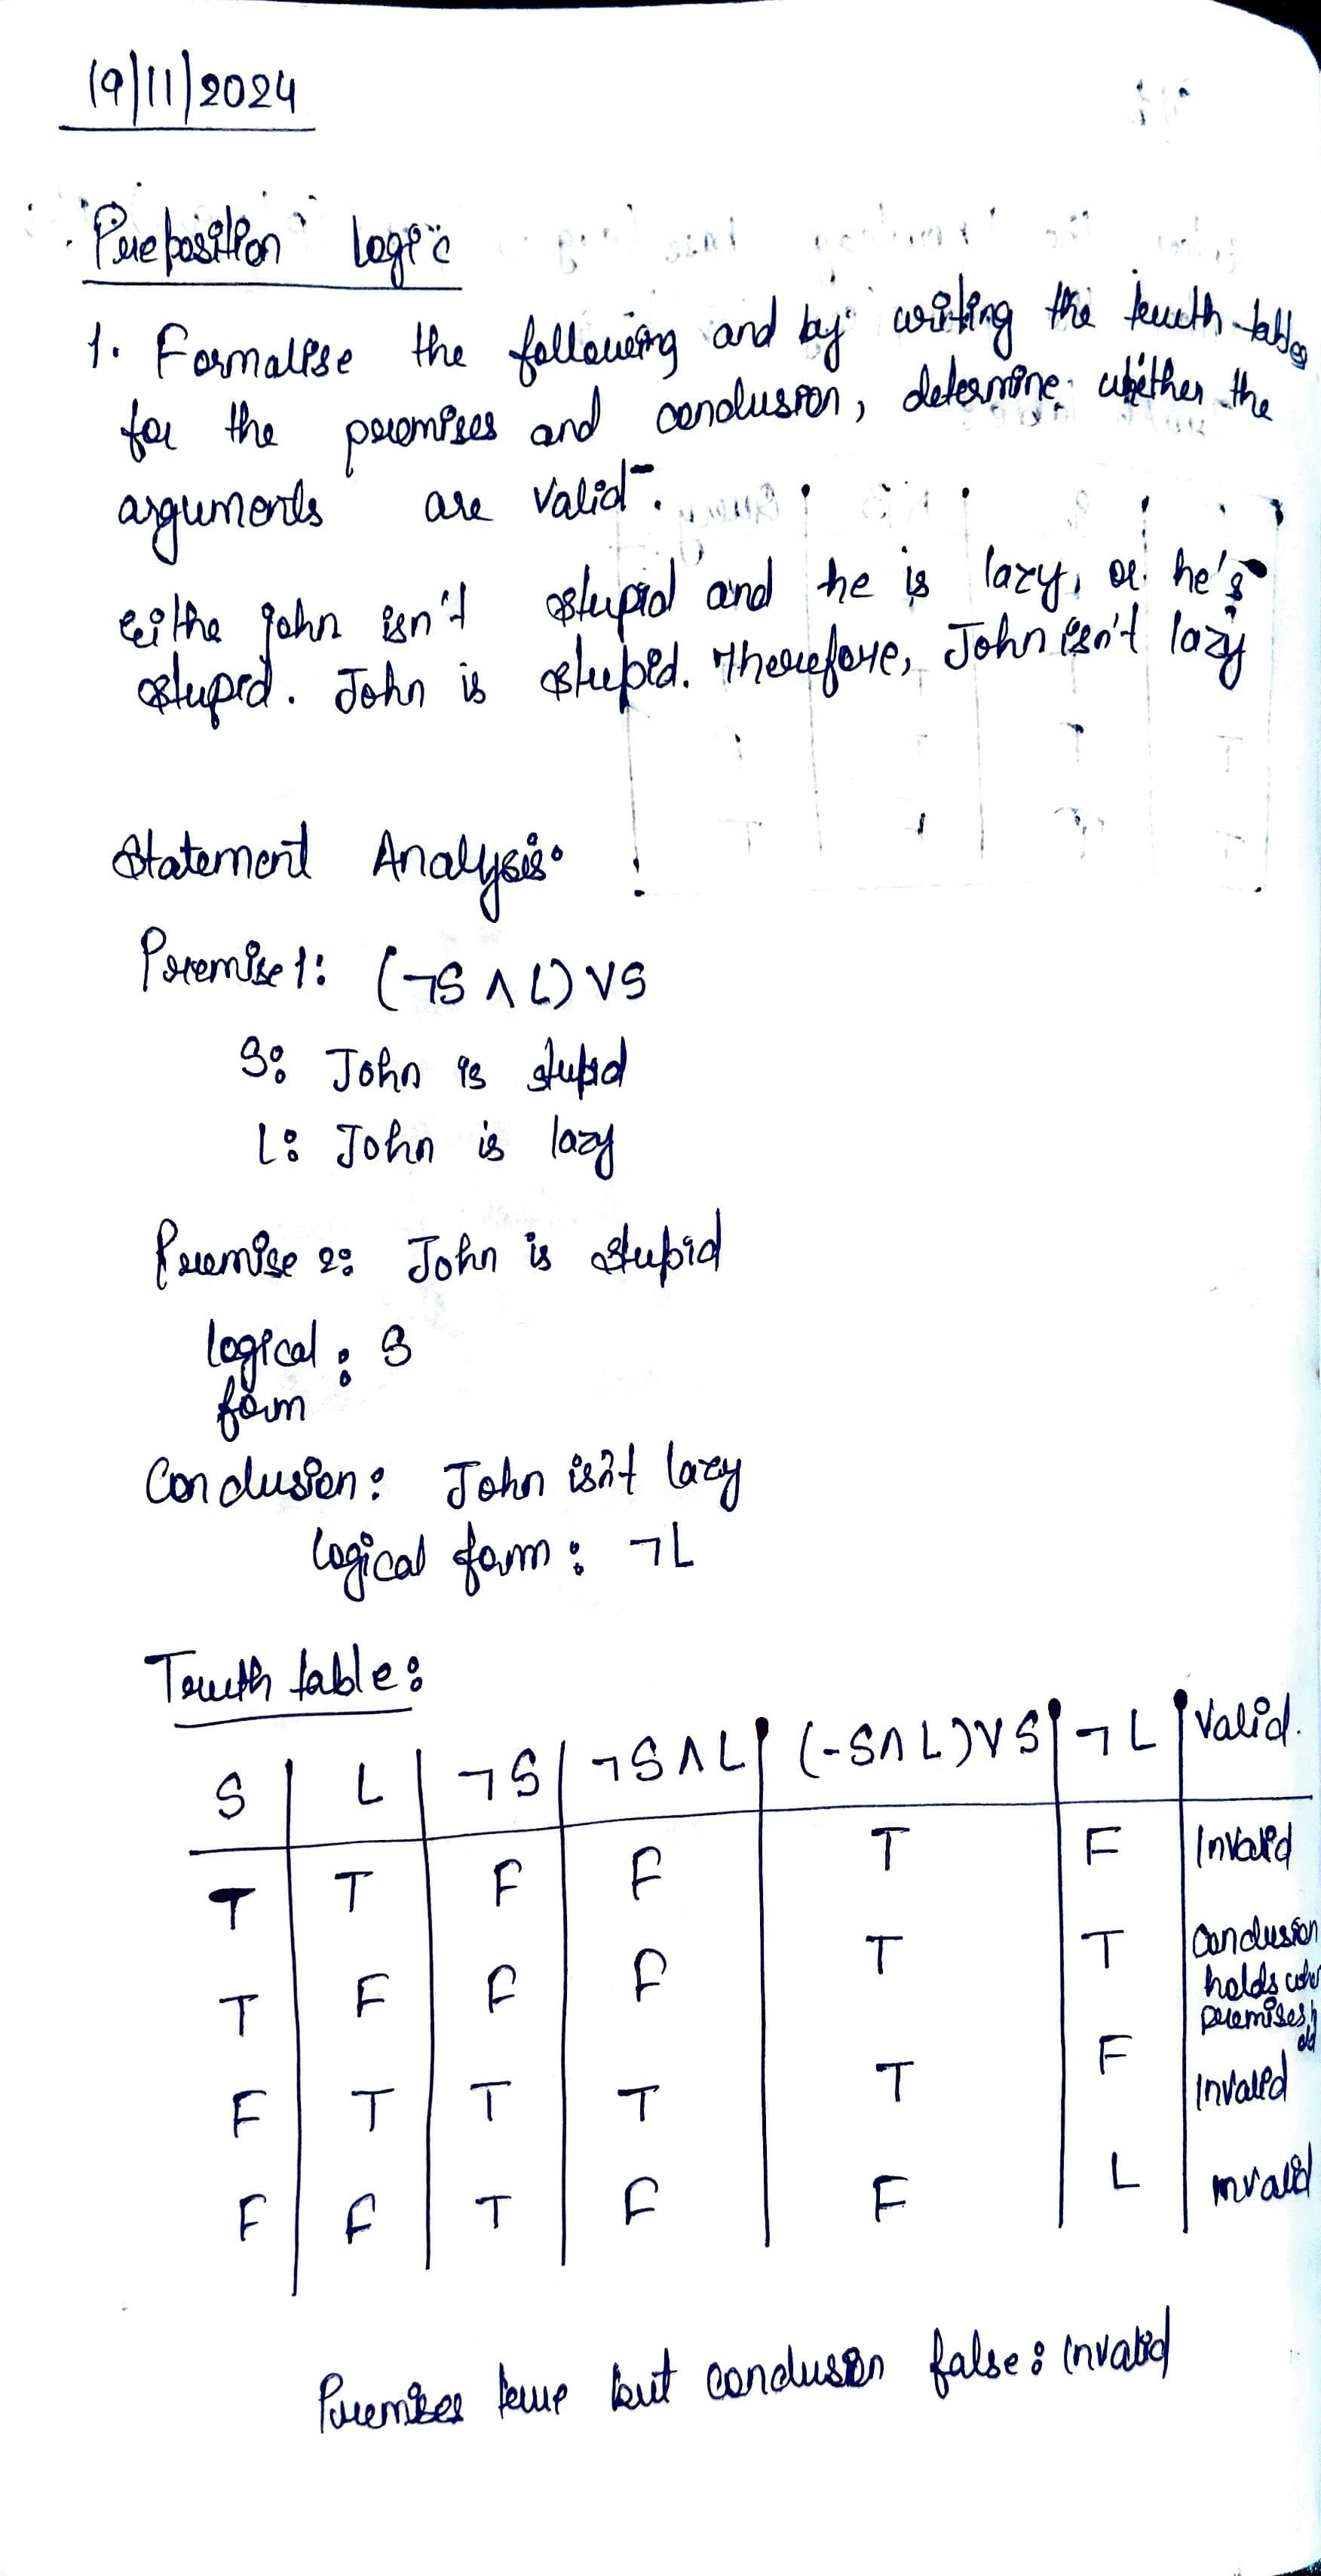 19/11/2024
Preposition logic
1. Formalise the following and by writing the truth tables
for the premises and conclusion, determine whether the
arguments are valid.
eithe john isn't stupid and he is lazy, or he's
stupid. John is stupid. Therefore, John isn't lazy
Statement Analysis:
Premise 1: (¬S ∧ L) ∨ S
S: John is stupid
L: John is lazy
Premise 2: John is stupid
logical : S
form
Conclusion: John isn't lazy
logical form: ¬L
Truth table:
S | L | ¬S | ¬S∧L | (-S∧L)∨S | ¬L | Valid.
T T F F T F Invalid
T F F F T T Conclusion
holds when
premises h
old
F T T T T F Invalid
F F T F F L invalid
Premises true but conclusion false: invalid